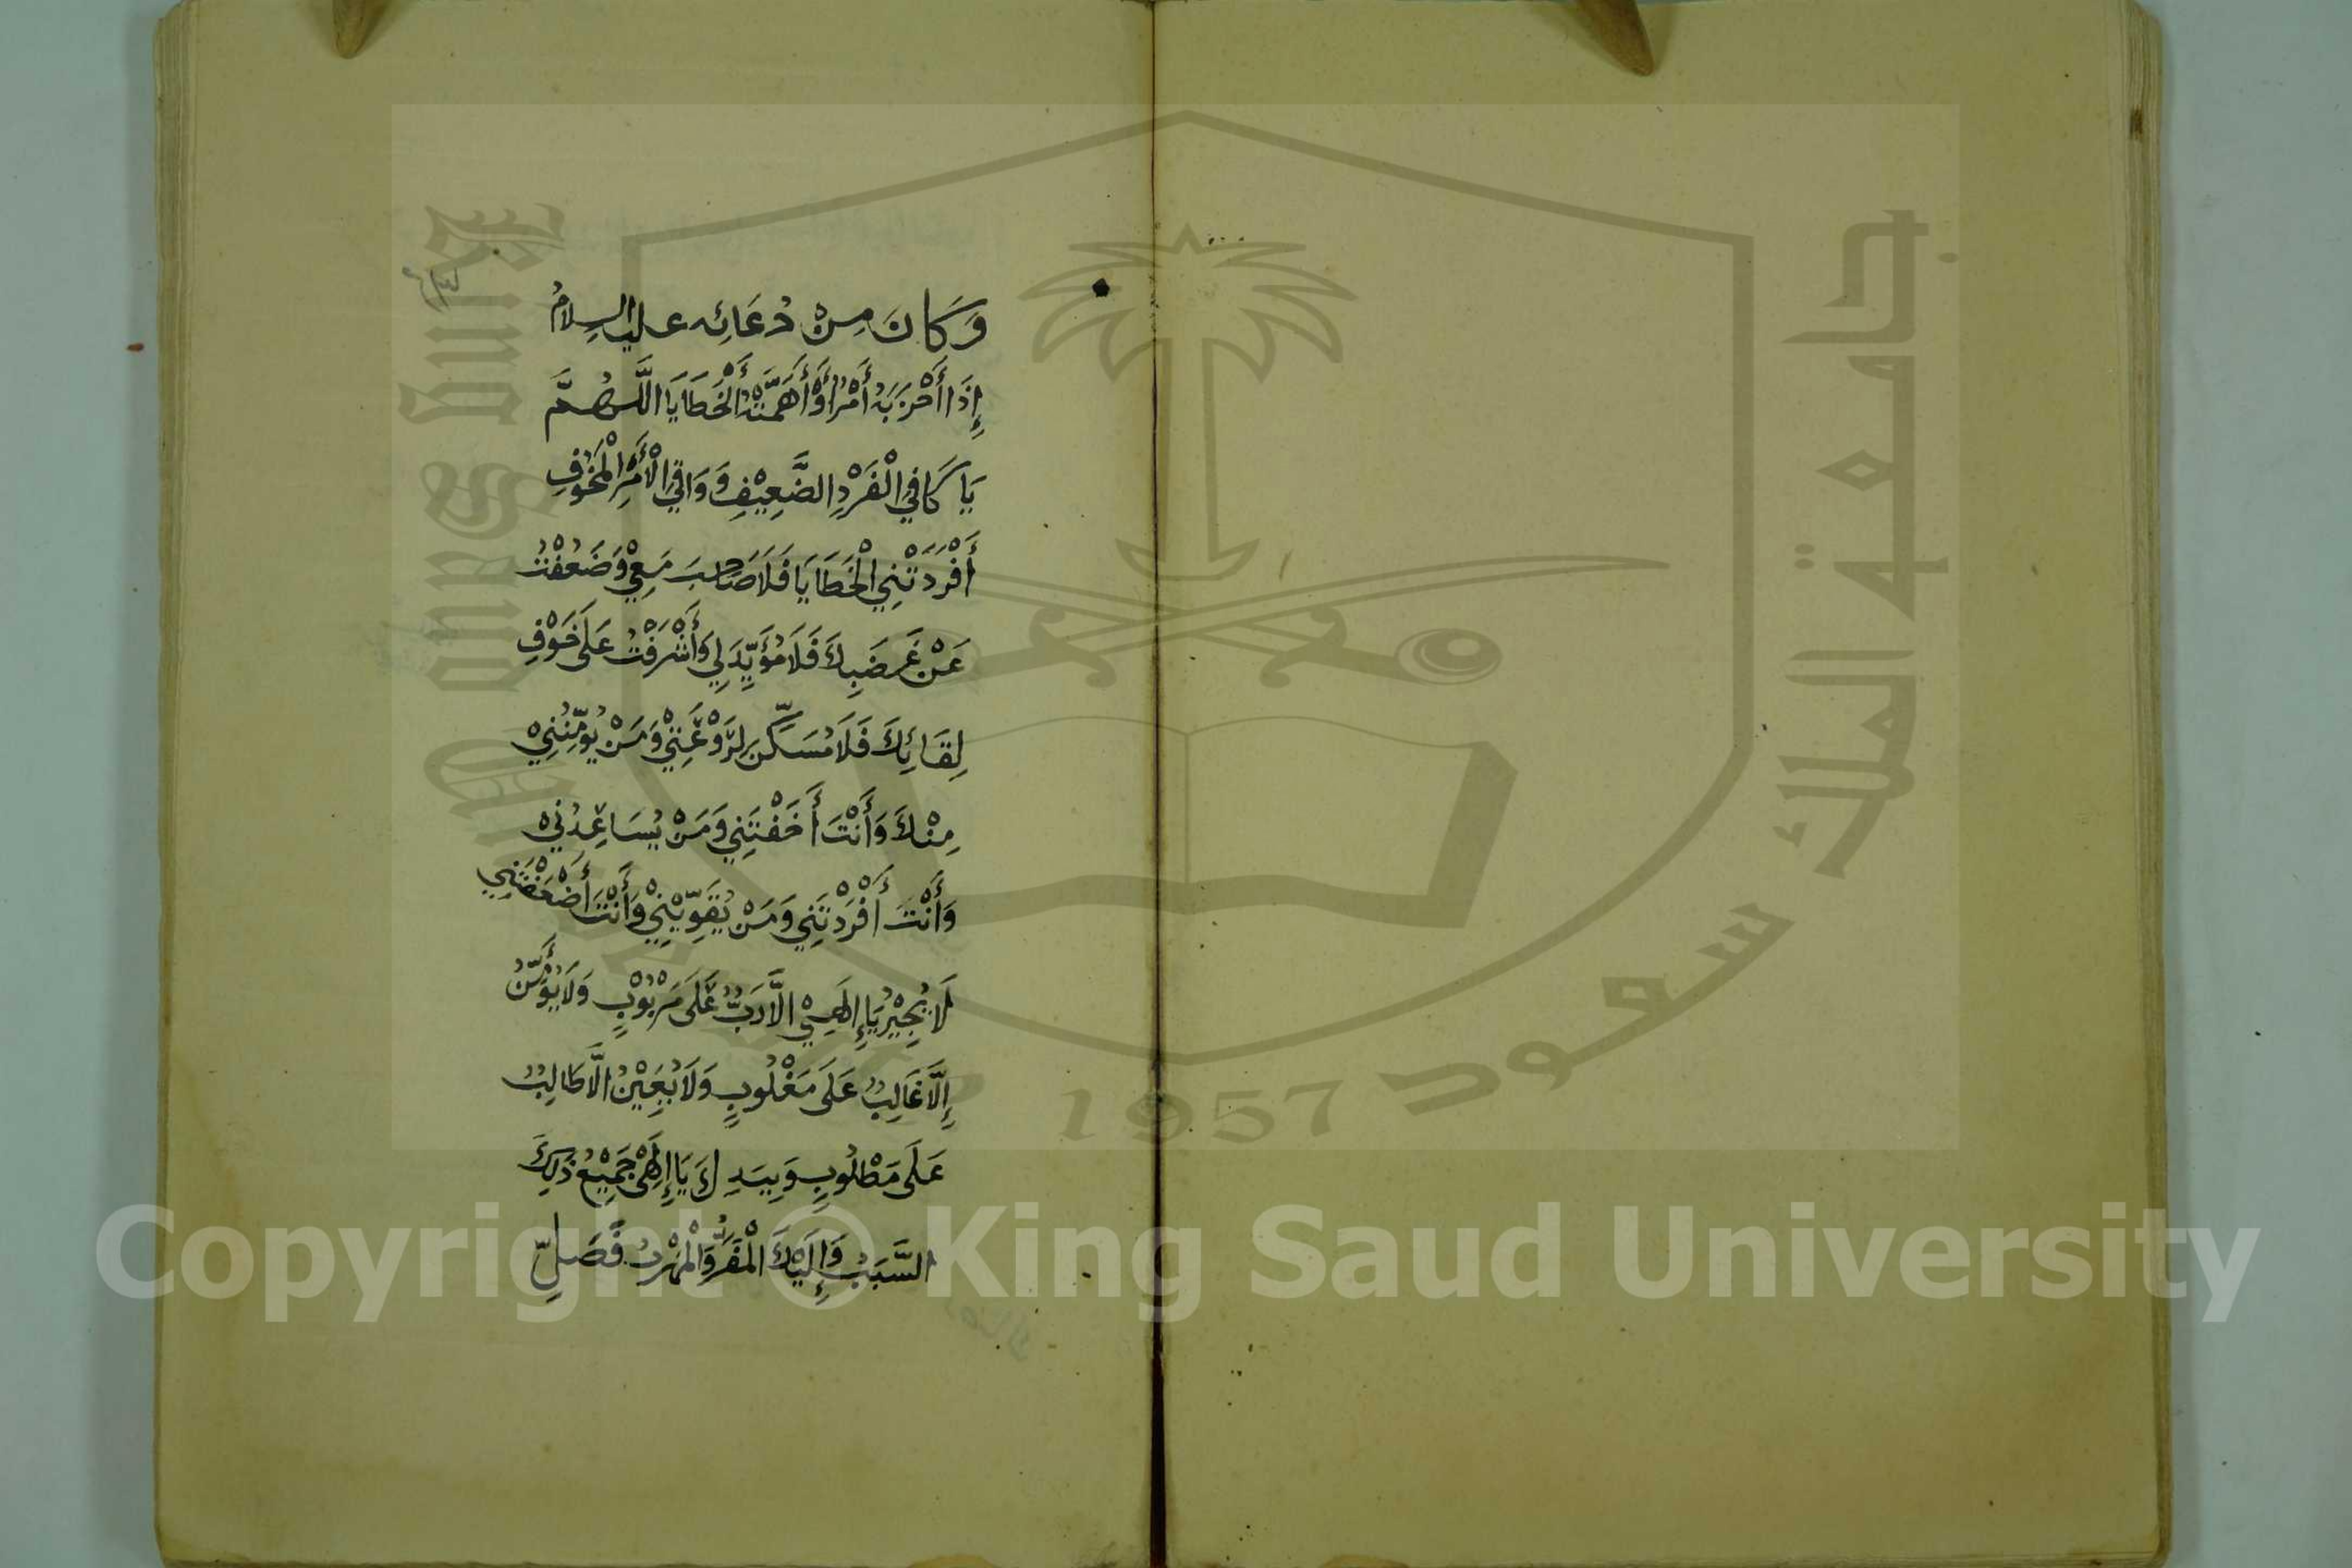 وَكَانَ مِنْ دُعَائِه عليه السلامُ
إِذَا أَحْزَبَهُ أَمْرٌ أَوْ أَهَمَّتْهُ الْخَطَايَا اللَّهُمَّ
يَا كَافِي الْفَرْدِ الضَّعِيْفِ وَ وَاقِي الْأَمْرِ الْمَخُوْفِ
أَفْرَدَتْنِي الْخَطَايَا فَلَا صَاحِبَ مَعِيْ وَضَعُفْتُ
عَنْ غَضَبِكَ فَلَا مُؤَيِّدَ لِي وَأَشْرَفْتُ عَلَى خَوْفِ
لِقَائِكَ فَلَا مُسَكِّنَ لِرَوْعَتِيْ وَمَنْ يُوَمِّنُنِيْ
مِنْكَ وَأَنْتَ أَخَفْتَنِي وَمَنْ يُسَاعِدُنِيْ
وَأَنْتَ أَفْرَدْتَنِي وَمَنْ يُقَوِّيْنِيْ وَأَنْتَ أَضْعَفْتَنِي
لَا يُجِيْرُ يَا إِلَهِيْ الَّا رَبٌّ عَلَى مَرْبُوْبٍ وَلَا يُؤَمِّنُ
إِلَّا غَالِبٌ عَلَى مَغْلُوبٍ وَلَا يُعِيْنُ الَّا طَالِبٌ
عَلَى مَطْلُوبٍ وَبِيَدِكَ يَا إِلَهِيْ جَمِيْعُ ذَلِكَ
السَّبَبُ وَإِلَيْكَ الْمَفَرُّ وَالْمَهْرَبُ فَصَلِّ
جامعة الملك سعود
1957
Copyright © King Saud University